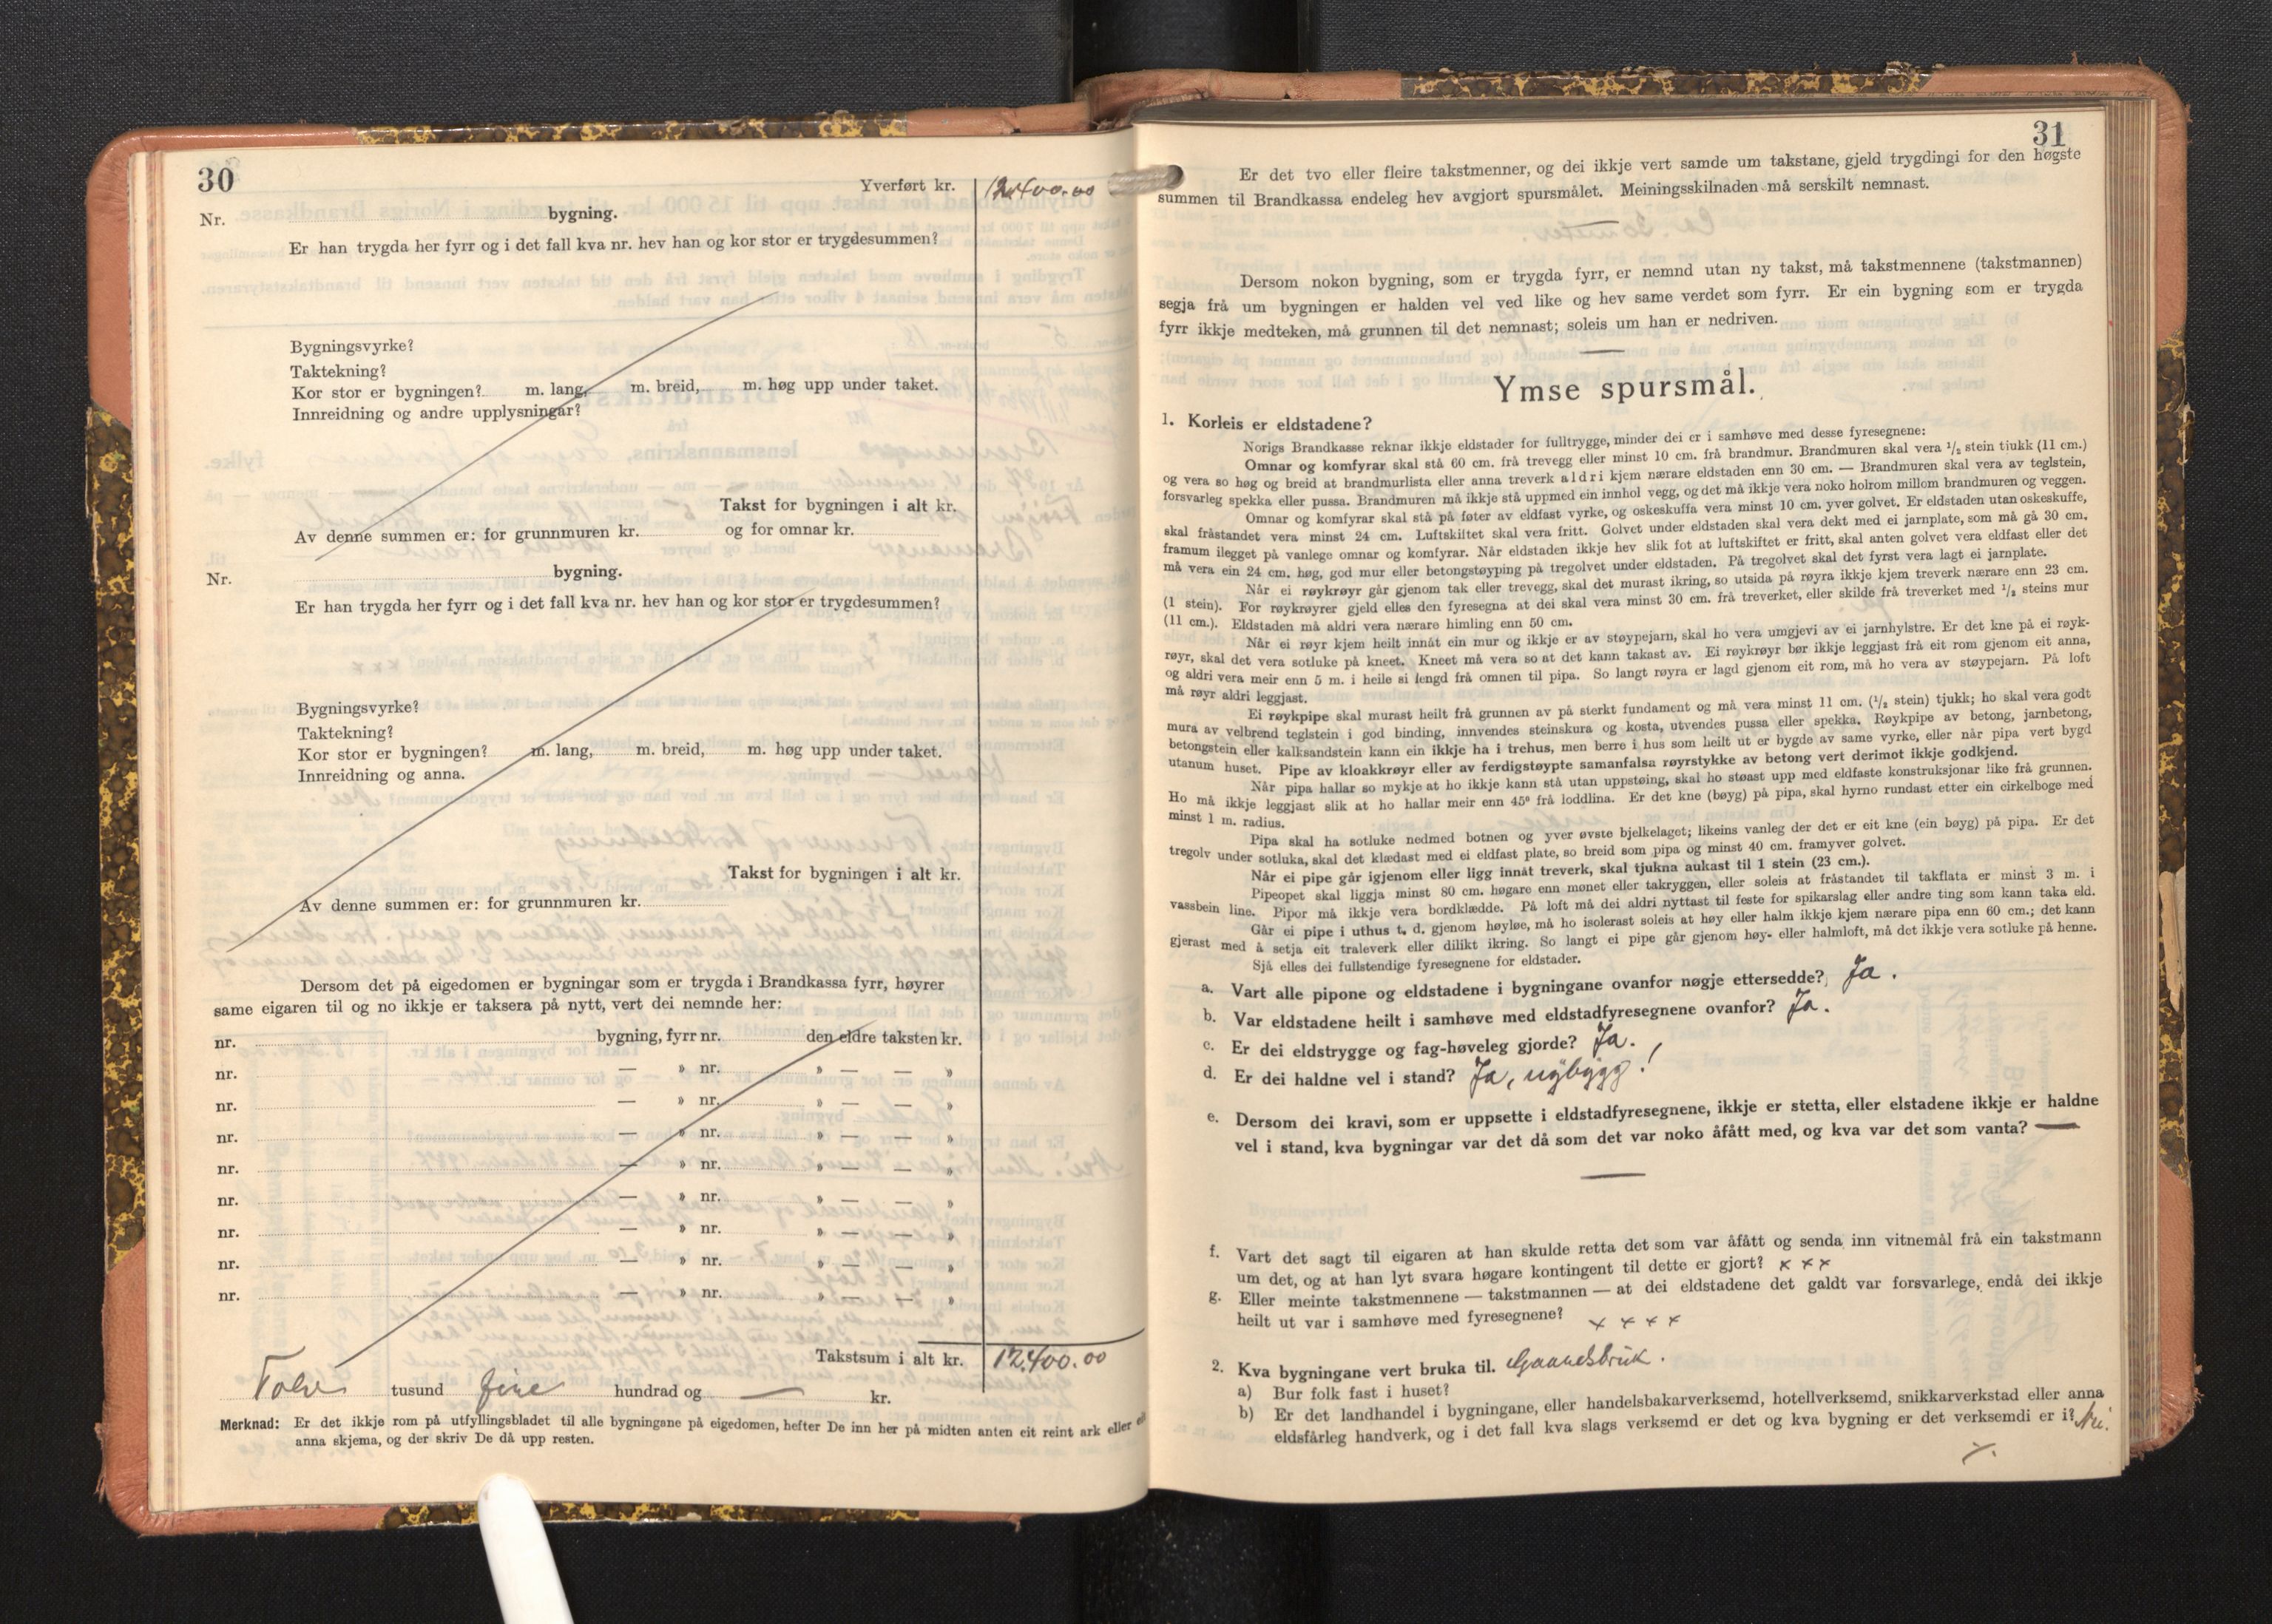 30
Yverført kr. 12.400.00
Nr. bygning.
Er han trygda her fyrr og i det fall kva nr. hev han og kor stor er trygdesummen?
Bygningsvyrke?
Taktekning?
Kor stor er bygningen? m. lang, m. breid, m. høg upp under taket.
Innreidning og andre upplysningar?
Takst for bygningen i alt kr.
Av denne summen er: for grunnmuren kr. og for omnar kr.
Nr. bygning.
Er han trygda her fyrr og i det fall kva nr. hev han og kor stor er trygdesummen?
Bygningsvyrke?
Taktekning?
Kor stor er bygningen? m. lang, m. breid, m. høg upp under taket.
Innreidning og anna.
Takst for bygningen i alt kr.
Av denne summen er: for grunnmuren kr.
Dersom det på eigedomen er bygningar som er trygda i Brandkassa fyrr, høyrer
same eigaren til og no ikkje er taksera på nytt, vert dei nemnde her:
nr. bygning, fyrr nr. den eldre taksten kr.
nr. — » nr. » — — »
nr. — » nr. » — — »
nr. — » nr. » — — »
nr. — » nr. » — — »
nr. — » nr. » — — »
nr. — » nr. » — — »
nr. — » nr. » — — »
nr. — » nr. » — — »
Takstsum i alt kr. 12.400.00
Tolv tusund fire hundrad og — kr.
Merknad: Er det ikkje rom på utfyllingsbladet til alle bygningane på eigedomen, hefter De inn her på midten anten eit reint ark eller eit
anna skjema, og der skriv De då upp resten.
31
Er det tvo eller fleire takstmenner, og dei ikkje vert samde um takstane, gjeld trygdingi for den høgste
summen til Brandkassa endeleg hev avgjort spursmålet. Meiningsskilnaden må serskilt nemnast.
Dersom nokon bygning, som er trygda fyrr, er nemnd utan ny takst, må takstmennene (takstmannen)
segja frå um bygningen er halden vel ved like og hev same verdet som fyrr. Er ein bygning som er trygda
fyrr ikkje medteken, må grunnen til det nemnast; soleis um han er nedriven.
Ymse spursmål.
1. Korleis er eldstadene?
Norigs Brandkasse reknar ikkje eldstader for fulltrygge, minder dei er i samhøve med desse fyresegnene:
Omnar og komfyrar skal stå 60 cm. frå trevegg eller minst 10 cm. frå brandmur. Brandmuren skal vera ½ stein tjukk (11 cm.)
og vera so høg og breid at brandmurlista eller anna treverk aldri kjem nærare eldstaden enn 30 cm. — Brandmuren skal vera av teglstein,
forsvarleg spekka eller pussa. Brandmuren må ikkje stå uppmed ein innhol vegg, og det må ikkje vera noko holrom millom brandmuren og veggen.
Omnar og komfyrar skal stå på føter av eldfast vyrke, og oskeskuffa vera minst 10 cm. yver golvet. Er eldstaden utan oskeskuffe,
skal fråstandet vera minst 24 cm. Luftskiftet skal vera fritt. Golvet under eldstaden skal vera dekt med ei jarnplate, som må gå 30 cm.
framum ilegget på vanlege omnar og komfyrar. Når eldstaden ikkje hev slik fot at luftskiftet er fritt, skal anten golvet vera eldfast eller det
må vera ein 24 cm. høg, god mur eller betongstøyping på tregolvet under eldstaden. På tregolvet skal det fyrst vera lagt ei jarnplate.
Når ei røykrøyr går gjenom tak eller trevegg, skal det murast ikring, so utsida på røyra ikkje kjem treverk nærare enn 23 cm.
(1 stein). For røykrøyrer gjeld elles den fyresegna at dei skal vera minst 30 cm. frå treverket, eller skilde frå treverket med ½ steins mur
(11 cm.). Eldstaden må aldri vera nærare himling enn 50 cm.
Når ei røyr kjem heilt innåt ein mur og ikkje er av støypejarn, skal ho vera umgjevi av ei jarnhylstre. Er det kne på ei røyk-
røyr, skal det vera sotluke på kneet. Kneet må vera so at det kann takast av. Ei røykrøyr bør ikkje leggjast frå eit rom gjenom eit anna,
og aldri vera meir enn 5 m. i heile si lengd frå omnen til pipa. So langt røyra er lagd gjenom eit rom, må ho vera av støypejarn. På loft
må røyr aldri leggjast.
Ei røykpipe skal murast heilt frå grunnen av på sterkt fundament og må vera minst 11 cm. (½ stein) tjukk; ho skal vera godt
mura av velbrend teglstein i god binding, innvendes steinskura og kosta, utvendes pussa eller spekka. Røykpipe av betong, jarnbetong,
betongstein eller kalksandstein kann ein ikkje ha i trehus, men berre i hus som heilt ut er bygde av same vyrke, eller når pipa vert bygd
utanum huset. Pipe av kloakkrøyr eller av ferdigstøypte samanfalsa røyrstykke av betong vert derimot ikkje godkjend.
Når pipa hallar so mykje at ho ikkje kann stå utan uppstøing, skal ho støast upp med eldfaste konstruksjonar like frå grunnen.
Ho må ikkje leggjast slik at ho hallar meir enn 45° frå loddlina. Er det kne (bøyg) på pipa, skal hyrno rundast etter ein cirkelboge med
minst 1 m. radius.
Pipa skal ha sotluke nedmed botnen og yver øvste bjelkelaget; likeins vanleg der det er eit kne (ein bøyg) på pipa. Er det
tregolv under sotluka, skal det klædast med ei eldfast plate, so breid som pipa og minst 40 cm. framyver golvet.
Når ei pipe går igjenom eller ligg innåt treverk, skal tjukna aukast til 1 stein (23 cm.).
Pipeopet skal liggja minst 80 cm. høgare enn mønet eller takryggen, eller soleis at fråstandet til takflata er minst 3 m. i
vassbein line. Pipor må ikkje vera bordklædde. På loft må dei aldri nyttast til feste for spikarslag eller andre ting som kann taka eld.
Går ei pipe i uthus t. d. gjenom høyløe, må ho isolerast soleis at høy eller halm ikkje kjem nærare pipa enn 60 cm.; det kann
gjerast med å setja eit traleverk eller dilikt ikring. So langt ei pipe går gjenom høy- eller halmloft, må det ikkje vera sotluke på henne.
Sjå elles dei fullstendige fyresegnene for eldstader.
a. Vart alle pipone og eldstadene i bygningane ovanfor nøgje ettersedde? Ja.
b. Var eldstadene heilt i samhøve med eldstadfyresegnene ovanfor? Ja.
c. Er dei eldstrygge og fag-høveleg gjorde? Ja.
d. Er dei haldne vel i stand? Ja, nybygg!
e. Dersom dei kravi, som er uppsette i eldstadfyresegnene, ikkje er stetta, eller elstadene ikkje er haldne
vel i stand, kva bygningar var det då som det var noko åfått med, og kva var det som vanta? —
f. Vart det sagt til eigaren at han skulde retta det som var åfått og senda inn vitnemål frå ein takstmann
um det, og at han lyt svara høgare kontingent til dette er gjort? x x x
g. Eller meinte takstmennene — takstmannen — at dei eldstadene det galdt var forsvarlege, endå dei ikkje
heilt ut var i samhøve med fyresegnene? x x x x
2. Kva bygningane vert bruka til. Gaardsbruk.
a) Bur folk fast i huset?
b) Er det landhandel i bygningane, eller handelsbakarverksemd, hotellverksemd, snikkarverkstad eller anna
eldsfårleg handverk, og i det fall kva slags verksemd er det og kva bygning er det verksemdi er i? Nei.